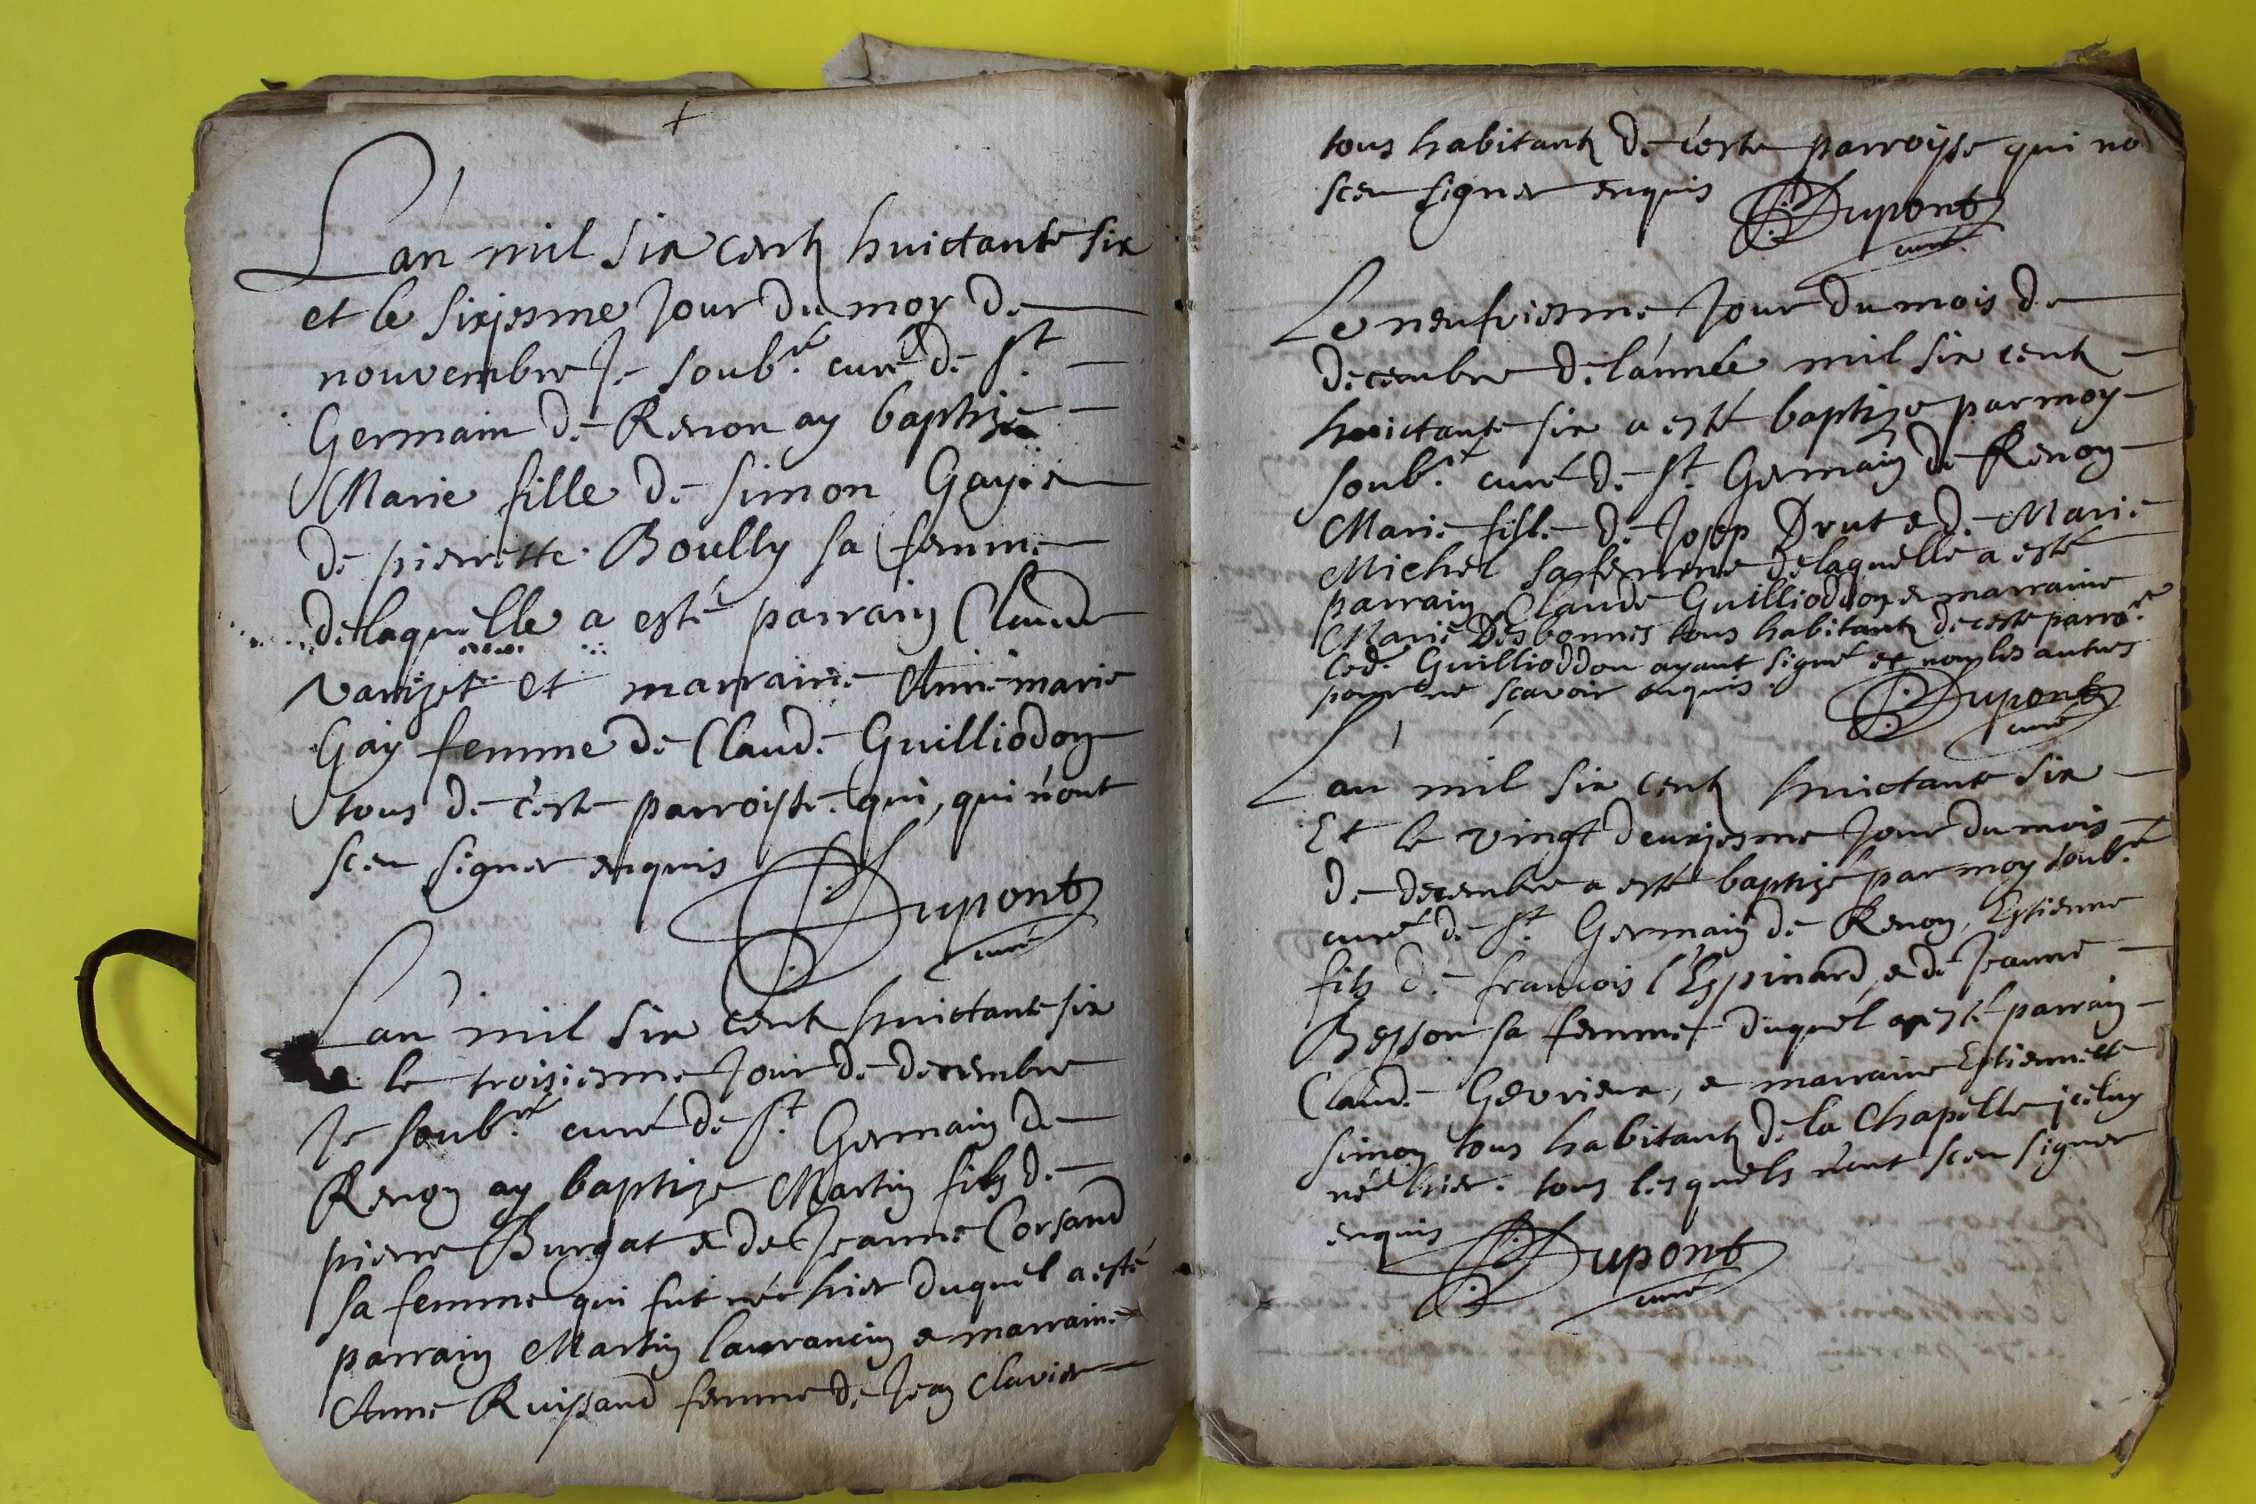 L'an mil six centz huictante six
et le sixjesme Jour du moy de
nouvembre Je soub.né curé de St
Germain de Renon ay baptizé
Marie fille de simon Gay e
de pierrette Boully sa femme
de laquelle a esté parrain Claude
et marraine Annemarie
Gay femme de Claude Guilliodon
tous de c'este parroisse qui, qui n'ont
sceu signer enquis
Dupont
curé
L'an mil six centz huictante six
e le troisiesme Jour de decembre
Je soub.né curé de St Germain de
Renon ay baptize Martin filz de
pierre Burgat e de Jeanne Corsand
sa femme qui fut né hier duquel a esté
parrain Martin laurancin e marraine
Anne Ruissand femme de Jean Clavier
tous habitantz de c'este parroisse qui no
sceu signer enquis
Dupont
curé
Le neufviesme Jour du mois de
decembre de l'année mil six centz
huictante six a esté baptize par moy
soub.né curé de St Germain de Renon
Marie fille de Josep Drut e de Marie
Michel sa femme de laquelle a esté
parrain Claude Guillioddon e marraine
Marie Desbonnes tous habitantz de ceste parro.e
led. Guillioddon ayant signé et non les autres
pour ne scavoir enquis
Dupont
curé
L'an mil six centz huictante six
Et le vingt deuxjesme Jour du mois
de decembre a esté baptizé par moy soub.né
curé de St Germain de Renon, Estienne
filz de francois l'Espinard e de Jeanne
Besson sa femme duquel a esté parrain
Claude Gevrieux, e marraine Estiennette
simon tous habitantz de la Chapelle icéluy
né hier. tous lesquels n'ont sceu signer
enquis
Dupont
curé